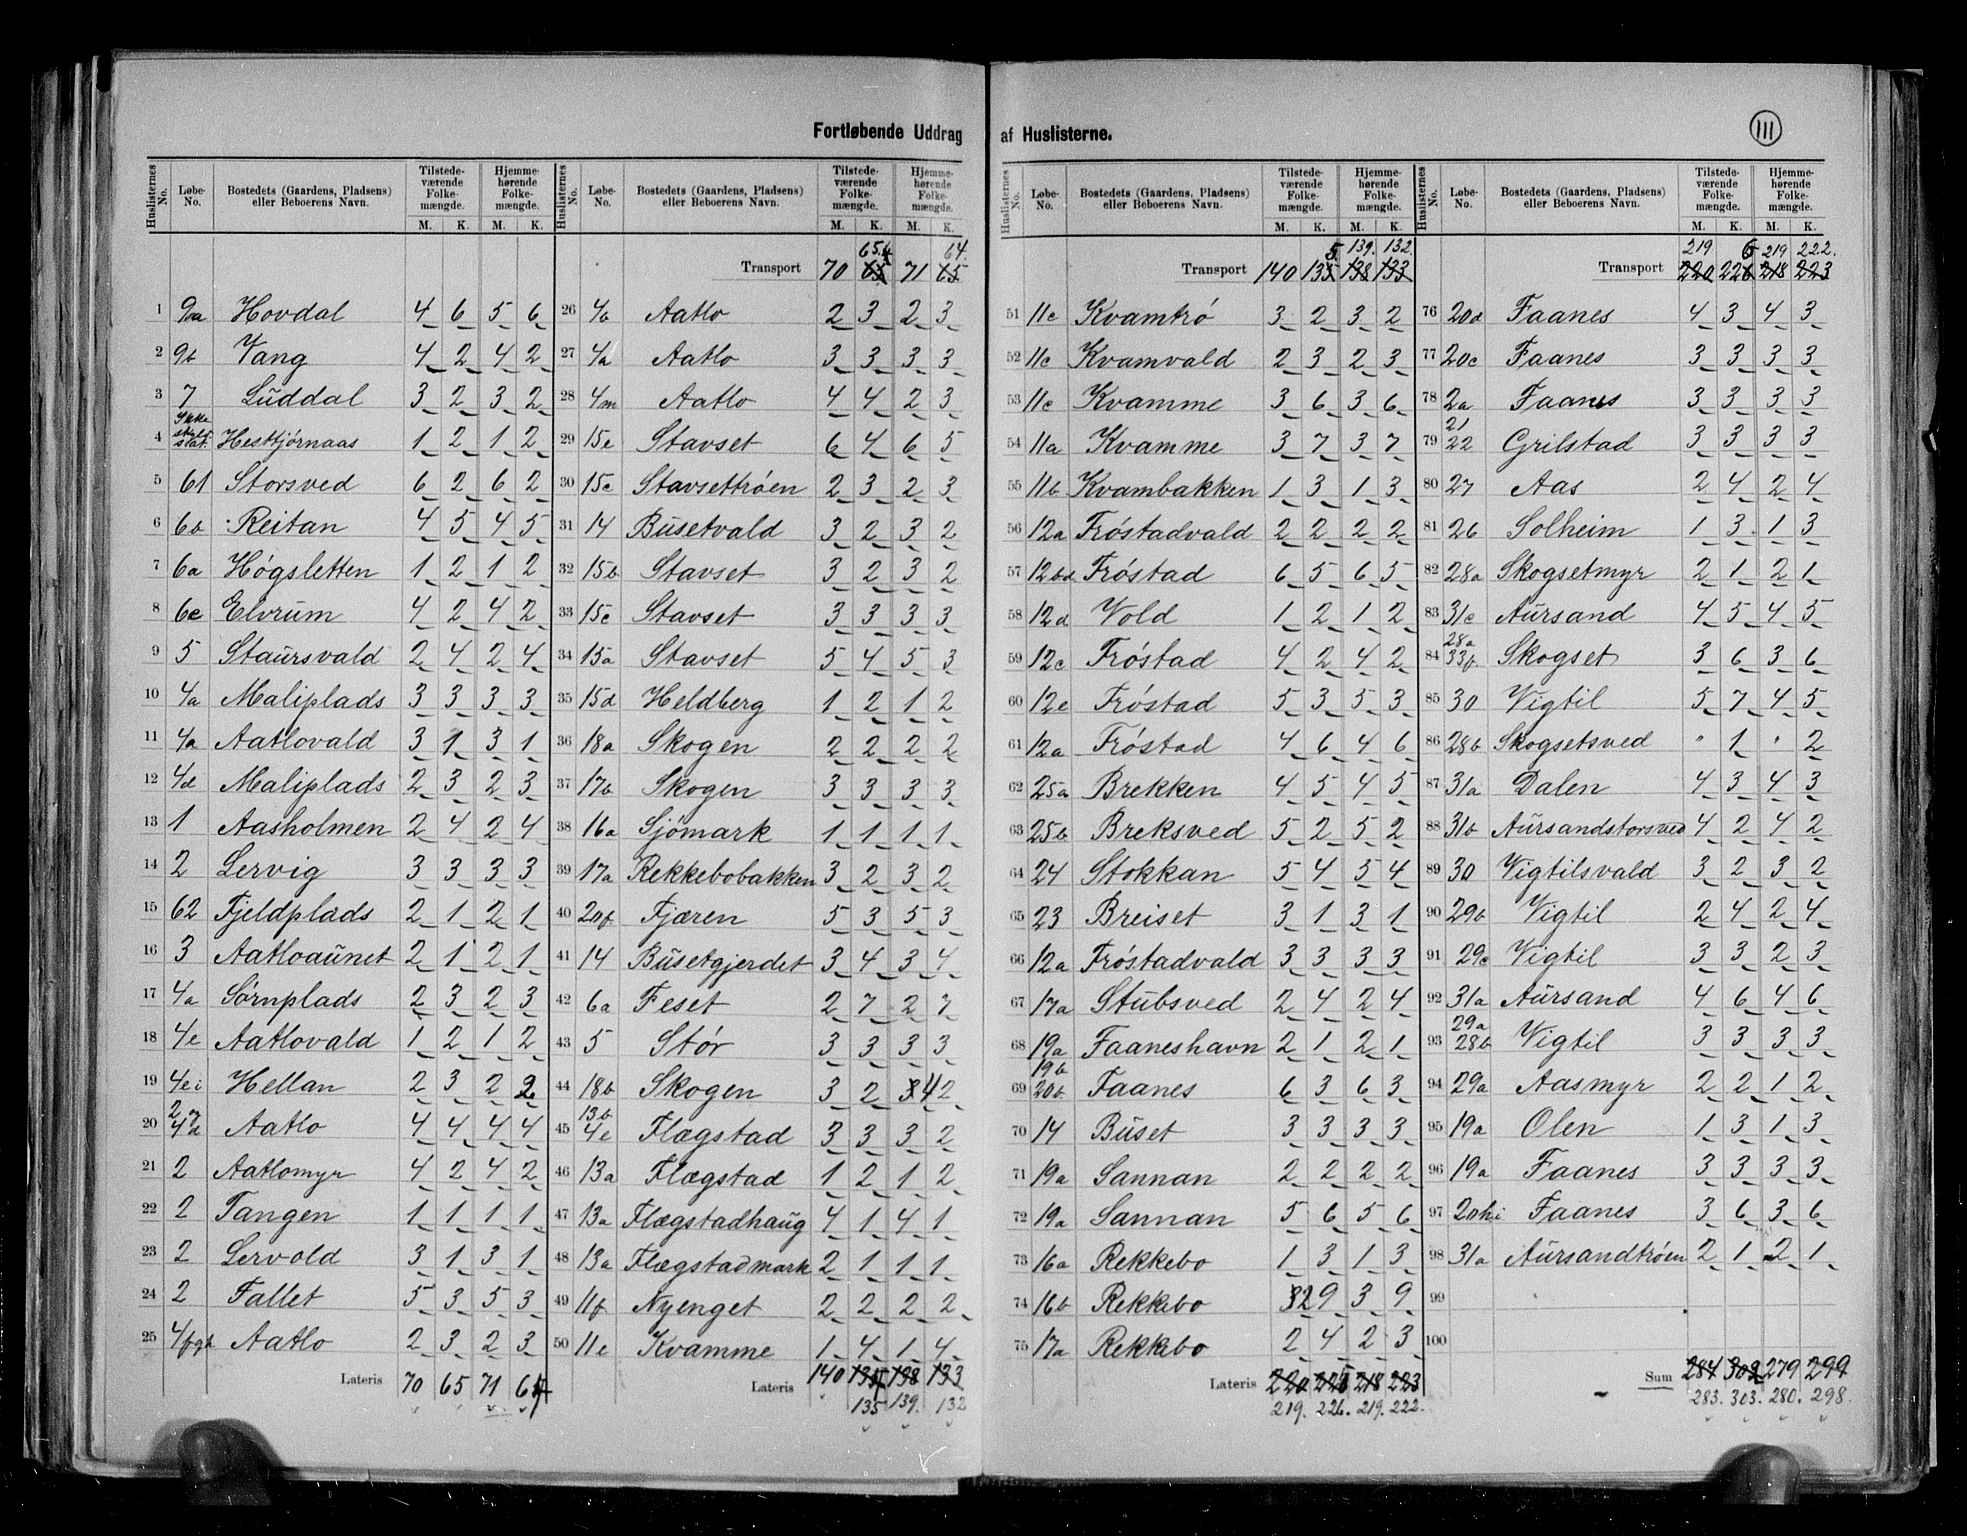 Fortløbende Uddrag af Huslisterne.
111
Huslisternes No. Løbe-No. Bostedets (Gaardens, Pladsens) eller Beboerens Navn. Tilstedeværende Folkemængde. M. K. Hjemmehørende Folkemængde. M. K.
1 9a Hovdal 4 6 5 6
2 9b Vang 4 2 4 2
3 7 Luddal 3 2 3 2
4 Ikke skyldsat. Hesttjørnaas 1 2 1 2
5 61 Storsved 6 2 6 2
6 6b Reitan 4 5 4 5
7 6a Høgsletten 1 2 1 2
8 6c Elvrum 4 2 4 2
9 5 Staursvald 2 4 2 4
10 4a Maliplads 3 3 3 3
11 4a Aatlovald 3 1 3 1
12 4d Maliplads 2 3 2 3
13 1 Aasholmen 2 4 2 4
14 2 Lervig 3 3 3 3
15 62 Fjeldplads 2 1 2 1
16 3 Aatloaunet 2 1 2 1
17 4a Sørnplads 2 3 2 3
18 4e Aatlovald 1 2 1 2
19 4ei Hellan 2 3 2 2
20 Aatlo 4 4 4 4
21 2 Aatlomyr 4 2 4 2
22 2 Tangen 1 1 1 1
23 2 Lervold 3 1 3 1
24 2 Fallet 5 3 5 3
25 4fgh Aatlo 2 3 2 3
Lateris 70 65 71 64
Huslisternes No. Løbe-No. Bostedets (Gaardens, Pladsens) eller Beboerens Navn. Tilstedeværende Folkemængde. M. K. Hjemmehørende Folkemængde. M. K.
65. 64.
Transport 70 65 71 65
26 4b Aatlo 2 3 2 3
27 4h Aatlo 3 3 3 3
28 4m Aatlo 4 4 2 3
29 15e Stavset 6 4 6 5
30 15c Stavsettrøen 2 3 2 3
31 14 Busetvald 3 2 3 2
32 15b Stavset 3 2 3 2
33 15c Stavset 3 3 3 3
34 15a Stavset 5 4 5 3
35 15d Heldberg 1 2 1 2
36 18a Skogen 2 2 2 2
37 17b Skogen 3 3 3 3
38 16a Sjømark 1 1 1 1
39 17a Rekkebobakken 3 2 3 2
40 20f Fjæren 5 3 5 3
41 14 Busetgjerdet 3 4 3 4
42 6a Feset 2 7 2 7
43 5 Stør 3 3 3 3
44 18b Skogen 3 2 4 2
45 13b 4c Flægstad 3 3 3 2
46 13a Flægstad 1 2 1 2
47 13a Flægstadhaug 4 1 4 1
48 13a Flægstadmark 2 1 1 1
49 11f Nyenget 2 2 2 2
50 11e Kvamme 1 4 1 4
Lateris 140 135 138 133
135 139. 132
Huslisternes No. Løbe-No. Bostedets (Gaardens, Pladsens) eller Beboerens Navn. Tilstedeværende Folkemængde. M. K. Hjemmehørende Folkemængde. M. K.
5. 139. 132.
Transport 140 135 138 133
51 11c Kvamtrø 3 2 3 2
52 11c Kvamvald 2 3 2 3
53 11c Kvamme 3 6 3 6
54 11a Kvamme 3 7 3 7
55 11b Kvambakken 1 3 1 3
56 12a Frøstadvald 2 2 2 2
57 12bd Frøstad 6 5 6 5
58 12d Vold 1 2 1 2
59 12c Frøstad 4 2 4 2
60 12e Frøstad 5 3 5 3
61 12a Frøstad 4 6 4 6
62 25a Brekken 4 5 4 5
63 25b Breksved 5 2 5 2
64 24 Stokkan 5 4 5 4
65 23 Breiset 3 1 3 1
66 12a Frøstadvald 3 3 3 3
67 17a Stubsved 2 4 2 4
68 19a Faaneshavn 2 1 2 1
69 19b 20b Faanes 6 3 6 3
70 14 Buset 3 3 3 3
71 19a Sannan 2 2 2 2
72 19a Sannan 5 6 5 6
73 16a Rekkebo 1 3 1 3
74 16b Rekkebo 2 9 3 9
75 17a Rekkebo 2 4 2 3
Lateris 220 226 218 223
219. 226. 219. 222.
Huslisternes No. Løbe-No. Bostedets (Gaardens, Pladsens) eller Beboerens Navn. Tilstedeværende Folkemængde. M. K. Hjemmehørende Folkemængde. M. K.
219 6 219 222.
Transport 220 226 218 223
76 20d Faanes 4 3 4 3
77 20c Faanes 3 3 3 3
78 2a Faanes 3 3 3 3
79 21 22 Grilstad 3 3 3 3
80 27 Aas 2 4 2 4
81 26 Solheim 1 3 1 3
82 28a Skogsetmyr 2 1 2 1
83 31c Aursand 4 5 4 5
84 28a 33b Skogset 3 6 3 6
85 30 Vigtil 5 7 4 5
86 28b Skogsetsved " 1 " 2
87 31a Dalen 4 3 4 3
88 31b Aursandstorsved 4 2 4 2
89 30 Vigtilsvald 3 2 3 2
90 29b Vigtil 2 4 2 4
91 29c Vigtil 3 3 2 3
92 31a Aursand 4 6 4 6
93 29a 28b Vigtil 3 3 3 3
94 29a Aasmyr 2 2 1 2
95 19a Olen 1 3 1 3
96 19a Faanes 3 3 3 3
97 20hi Faanes 3 6 3 6
98 31a Aursandtrøen 2 1 2 1
99
100
Sum 284 302 279 299
283. 303. 280. 298.